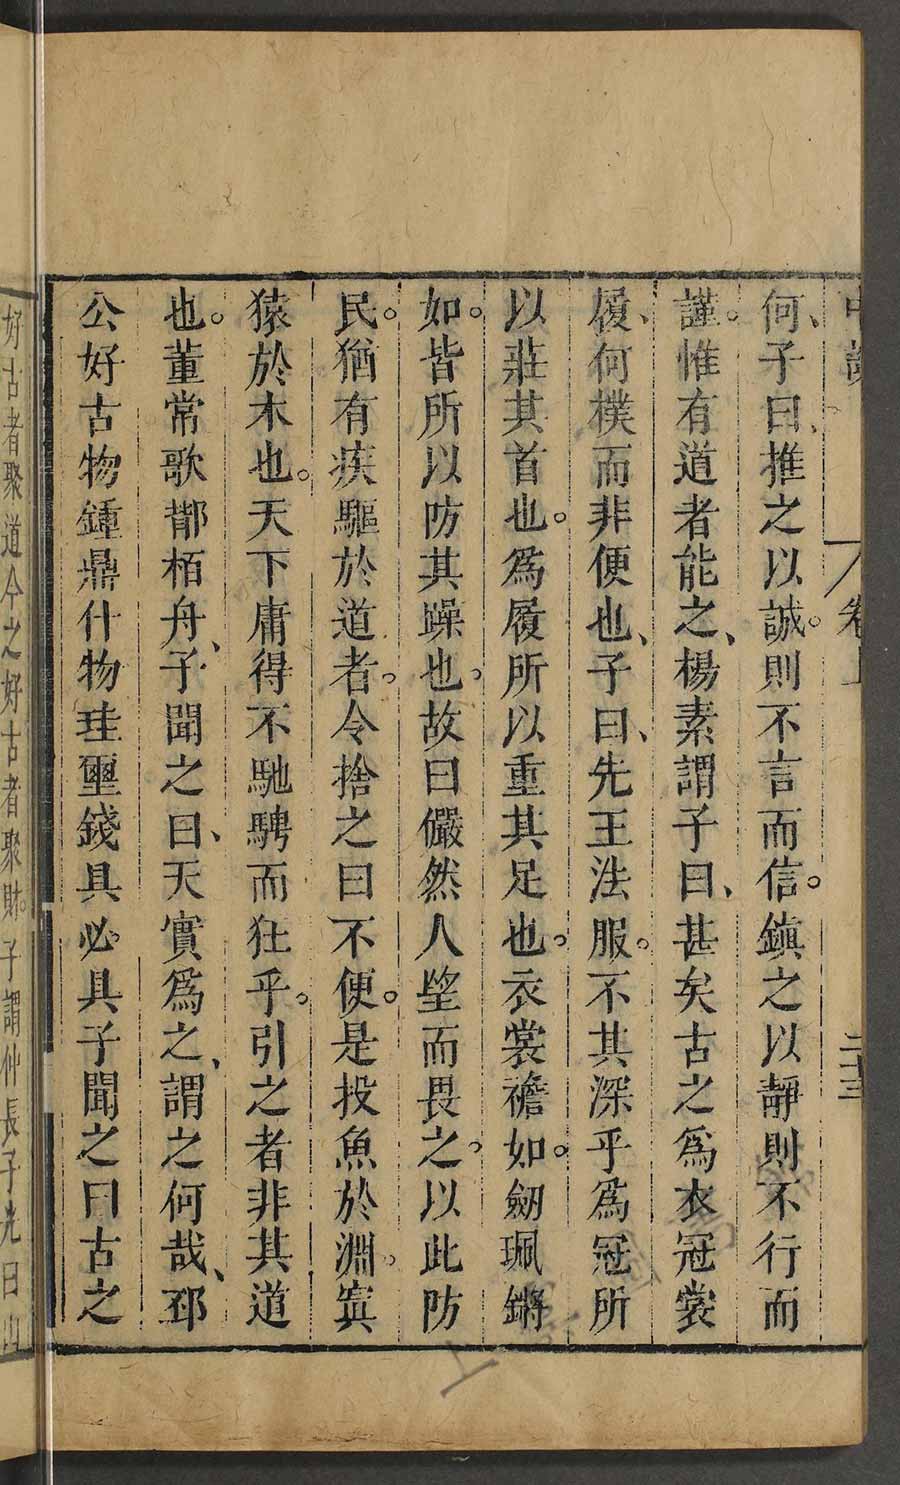 中說 卷上 二十三
何、子曰、推之以誠。則不言而信。鎮之以靜則不行而
謹。惟有道者能之、楊素謂子曰、甚矣古之爲衣冠裳
履、何樸而非便也、子曰、先王法服。不其深乎爲冠所
以莊其首也。爲履所以重其足也。衣裳襜如。劒珮鏘
如。皆所以防其躁也。故曰儼然人朢而畏之。以此防
民。猶有疾驅於道者。今捨之曰不便。是投魚於淵。寘
猿於木也。天下庸得不馳騁而狂乎。引之者非其道
也。董常歌鄁栢舟、子聞之曰、天實爲之、謂之何哉、邳
公好古物鍾鼎什物珪璽錢具必具子聞之曰古之
好古者聚道今之好古者聚財。子謂仲長子光曰山